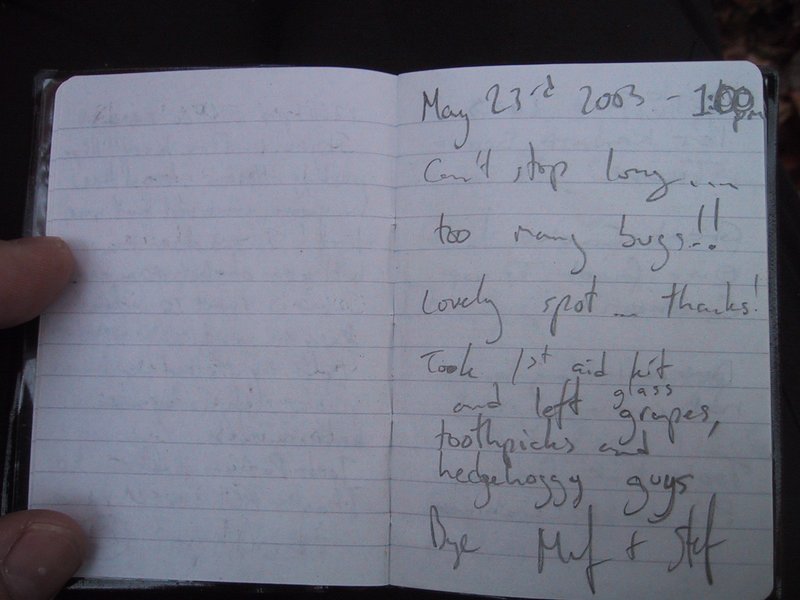 May 23rd 2003 - 1:00 pm
Can't stop long ....
too many bugs!!
Lovely spot ... thanks!
Took 1st aid kit
and left glass grapes,
toothpicks and
hedgehoggy guys
Bye Muf & Stef